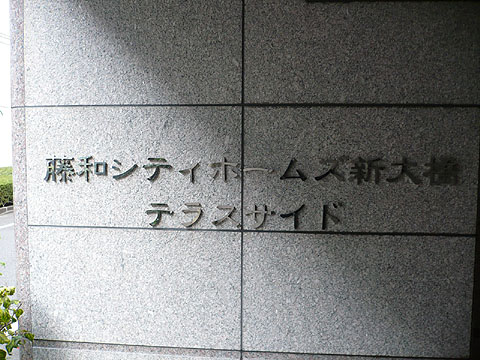 藤和シティホームズ新大橋
テラスサイド